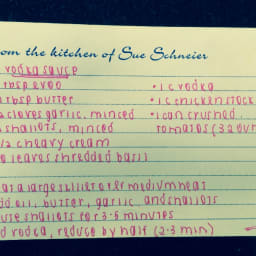 om the kitchen of Sue Schneier
vodka sauce
tbsp evoo
tbsp butter
cloves garlic, minced
shallots, minced
1/2 c heavy cream
leaves shredded basil
• 1 c vodka
• 1 c chicken stock
• 1 can crushed
tomatos (32 oun
eat a large skillet over medium heat
dd oil, butter, garlic and shallots
aute shallots for 3-5 minutes
d vodka, reduce by half (2-3 min)